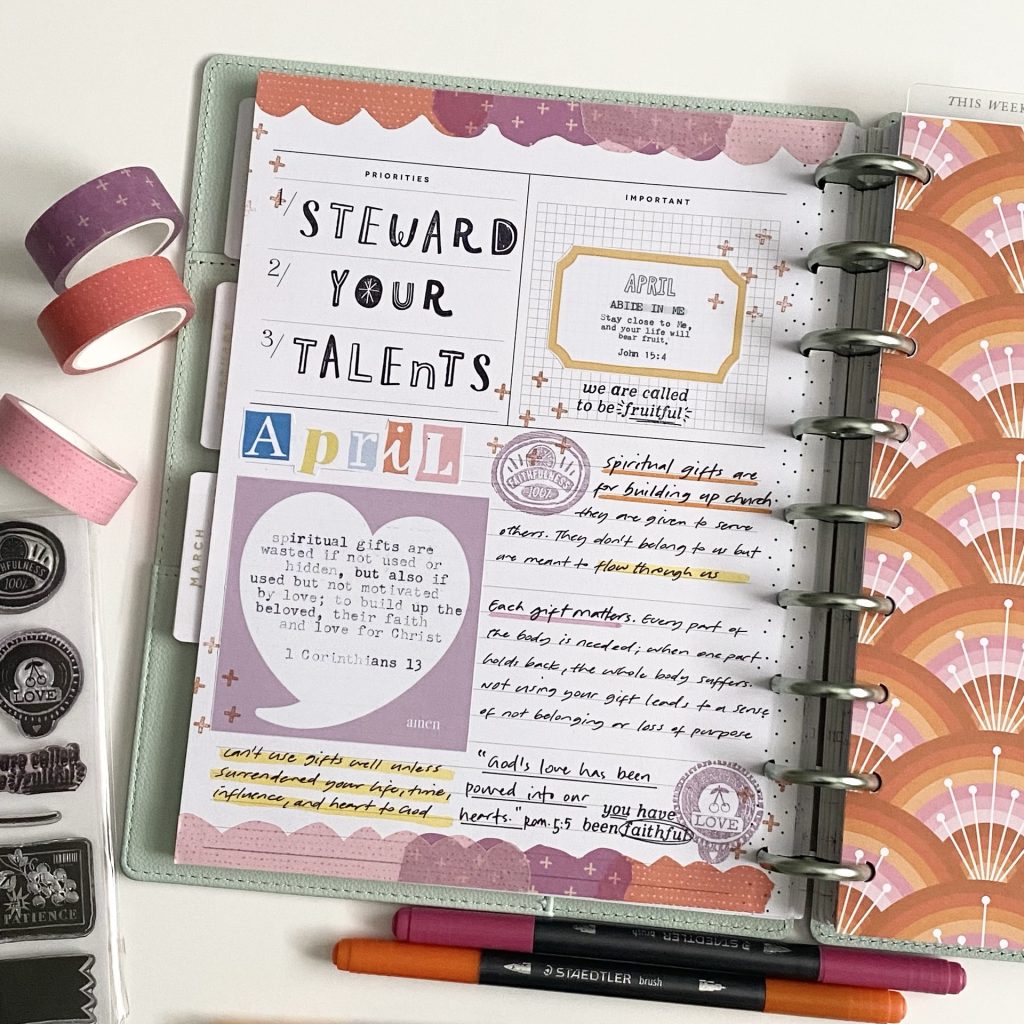 THIS WEEK
PRIORITIES
1/ STEWARD
2/ YOUR
3/ TALENTS
IMPORTANT
APRIL
ABIDE IN ME
Stay close to Me,
and your life will
bear fruit.
John 15:4
we are called
to be fruitful
April
FAITHFULNESS
100%
spiritual gifts are
for building up church.
they are given to serve
others. They don't belong to us but
are meant to flow through us
Each gift matters. Every part of
the body is needed; when one part
holds back, the whole body suffers.
Not using your gift leads to a sense
of not belonging or loss of purpose
spiritual gifts are
wasted if not used or
hidden, but also if
used but not motivated
by love; to build up the
beloved, their faith
and love for Christ
1 Corinthians 13
amen
can't use gifts well unless
surrendered your life, time,
influence, and heart to God
"God's love has been
poured into our
hearts." Rom. 5:5
you have
been faithful
LOVE
MARCH
FAITHFULNESS
100%
LOVE
are called
fruitful
PATIENCE
STAEDTLER brush
STAEDTLER brush